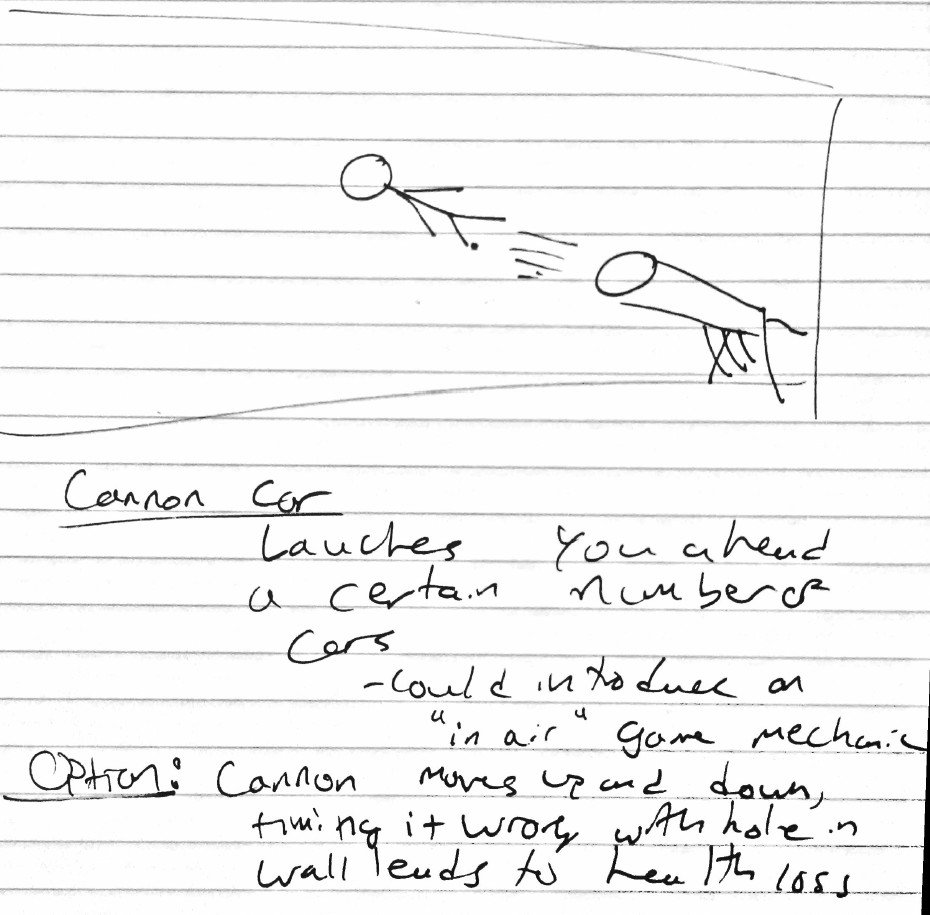 Cannon Car
Lauches you ahead
a certain number of
cars
-could introduce an
"in air" game mechanic
Option: Cannon moves up and down,
timing it wrong with hole in
wall leads to health loss